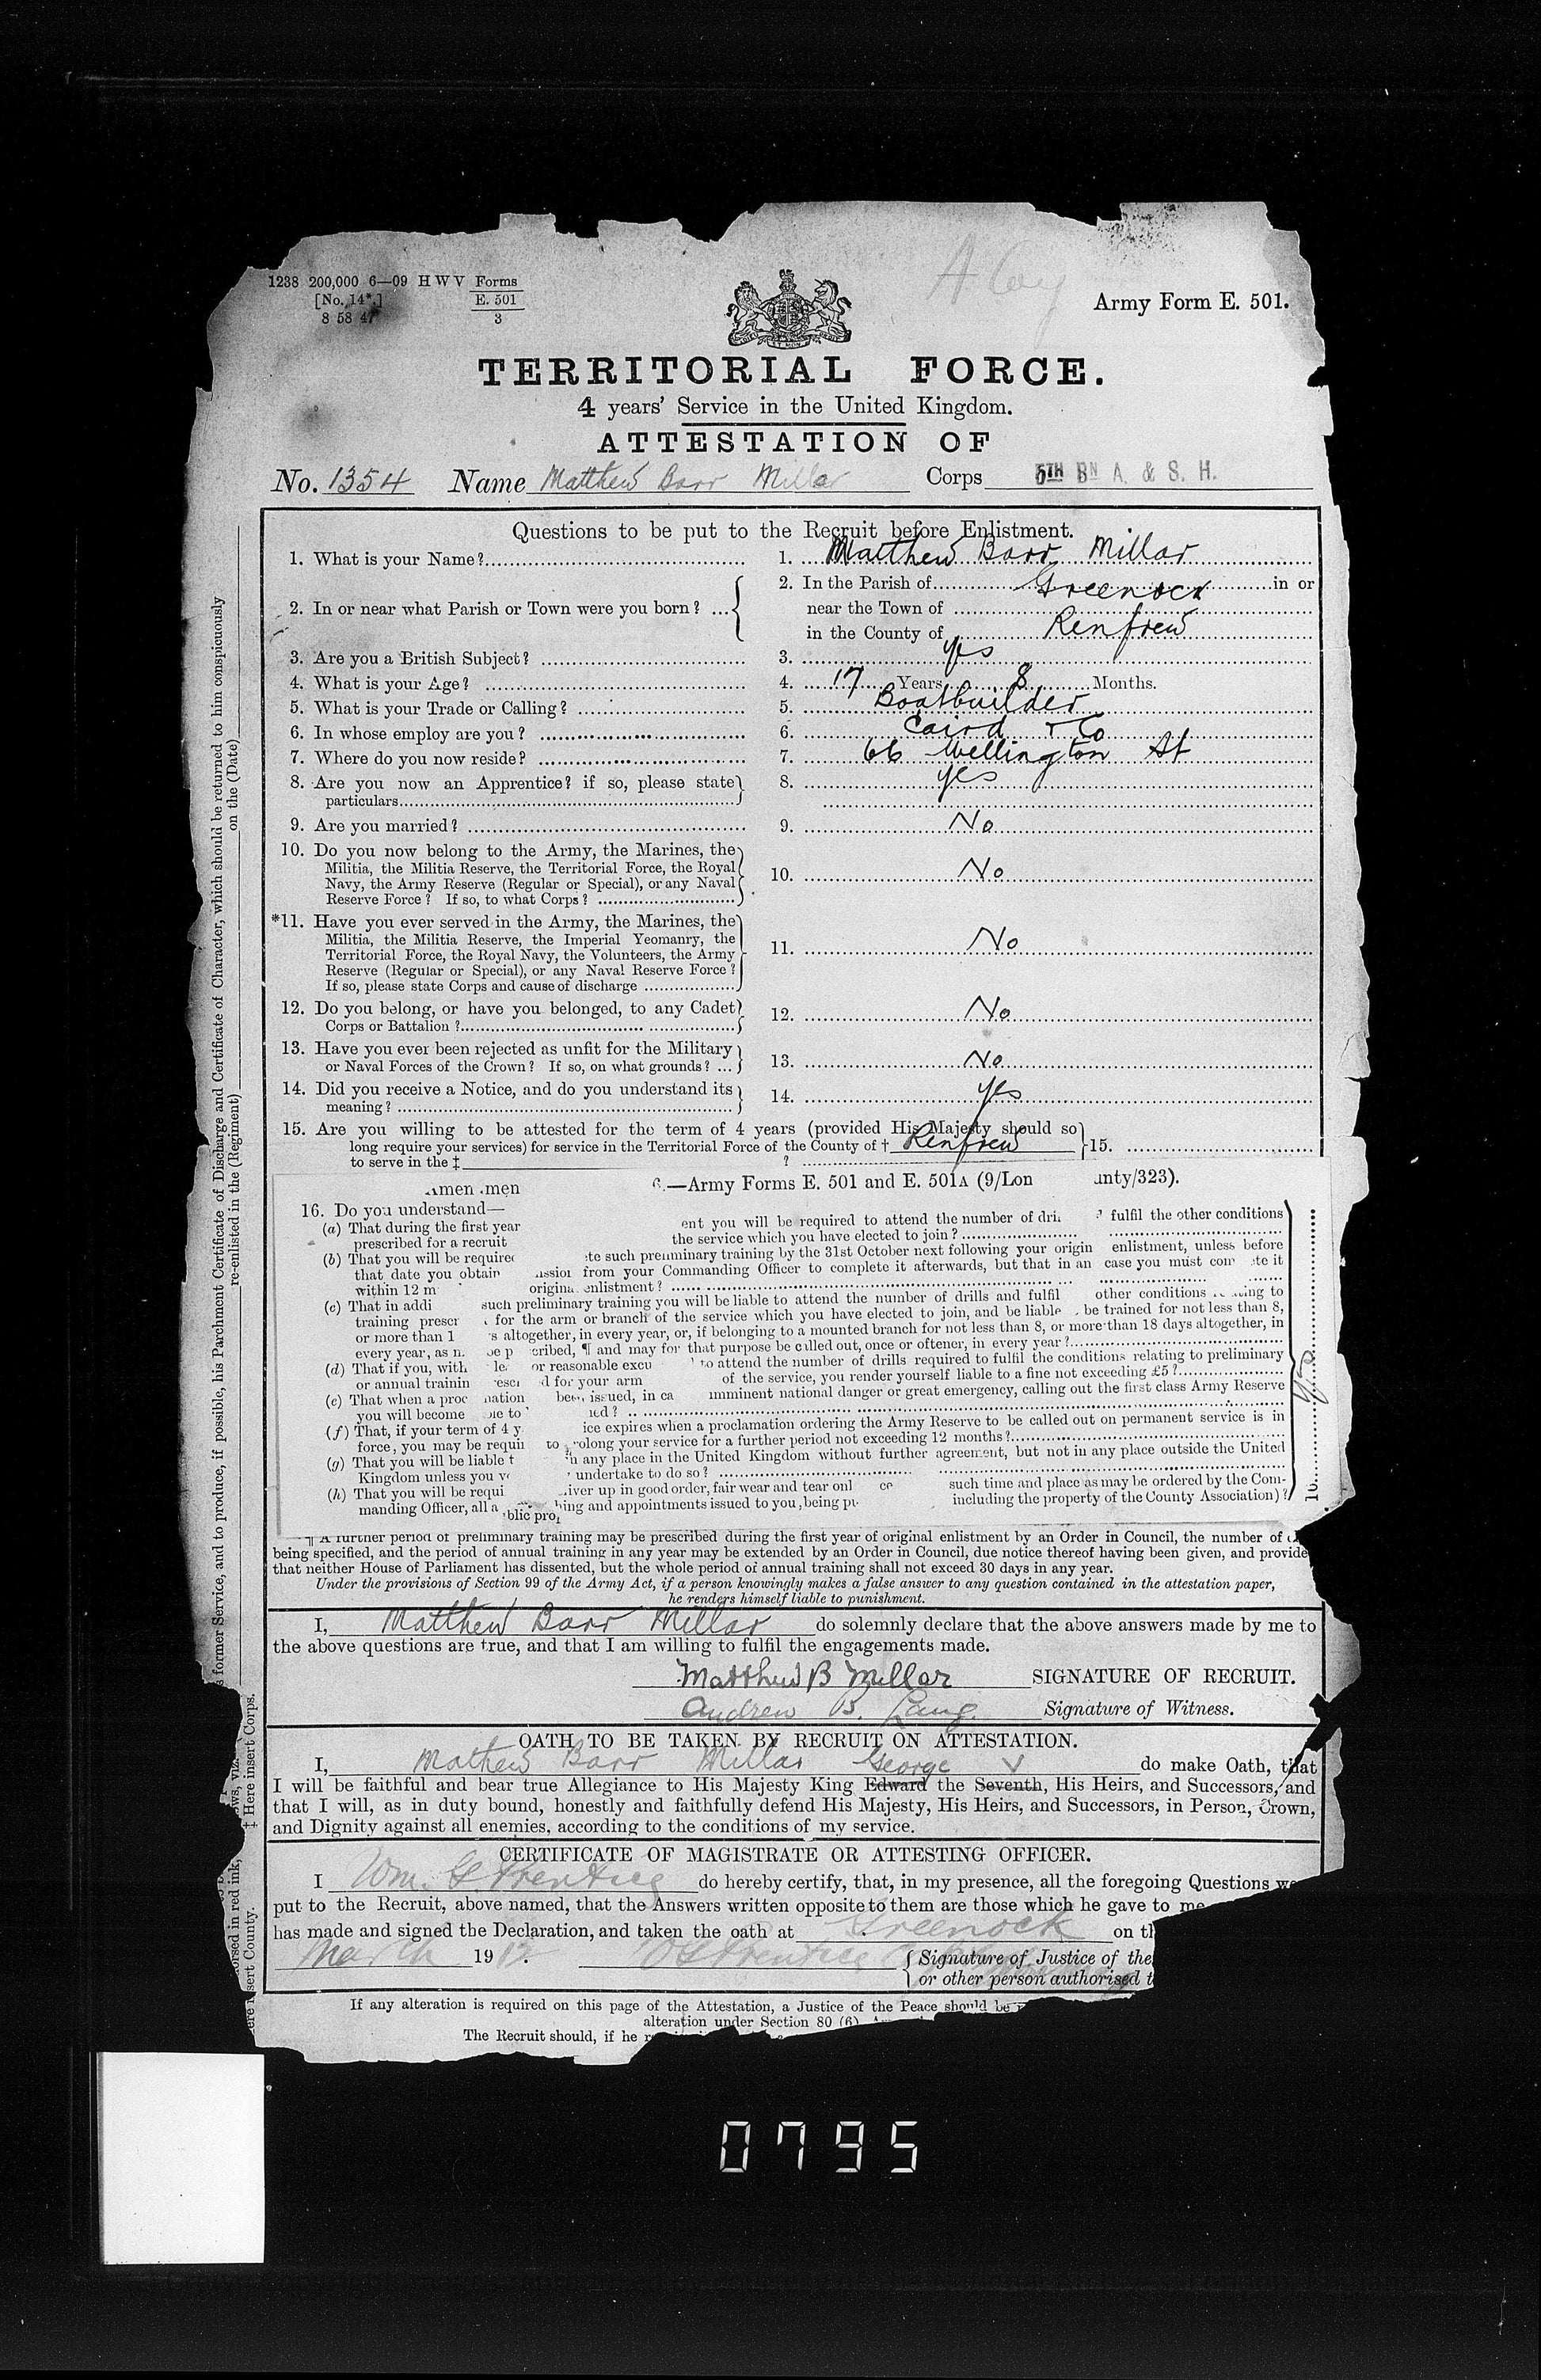 1238 200,000 6—09 H W V Forms
[No. 14*.] E. 501
8 58 47 3
A Coy
Army Form E. 501.
TERRITORIAL FORCE.
4 years' Service in the United Kingdom.
ATTESTATION OF
No. 1354 Name Matthew Barr Millar Corps 5TH BN A. & S. H.
Questions to be put to the Recruit before Enlistment.
1. What is your Name? 1. Matthew Barr Millar
2. In or near what Parish or Town were you born? ... 2. In the Parish of Greenock in or
near the Town of
in the County of Renfrew
3. Are you a British Subject? 3. yes
4. What is your Age? 4. 17 Years 8 Months.
5. What is your Trade or Calling? 5. Boatbuilder
6. In whose employ are you? 6. Caird & Co
7. Where do you now reside? 7. 66 Wellington St
8. Are you now an Apprentice? if so, please state 8. yes
particulars
9. Are you married? 9. No
10. Do you now belong to the Army, the Marines, the
Militia, the Militia Reserve, the Territorial Force, the Royal
Navy, the Army Reserve (Regular or Special), or any Naval
Reserve Force? If so, to what Corps? 10. No
*11. Have you ever served in the Army, the Marines, the
Militia, the Militia Reserve, the Imperial Yeomanry, the
Territorial Force, the Royal Navy, the Volunteers, the Army
Reserve (Regular or Special), or any Naval Reserve Force?
If so, please state Corps and cause of discharge 11. No
12. Do you belong, or have you belonged, to any Cadet
Corps or Battalion? 12. No
13. Have you ever been rejected as unfit for the Military
or Naval Forces of the Crown? If so, on what grounds? ... 13. No
14. Did you receive a Notice, and do you understand its
meaning? 14. yes
15. Are you willing to be attested for the term of 4 years (provided His Majesty should so
long require your services) for service in the Territorial Force of the County of † Renfrew 15.
to serve in the ‡ ?
—Army Forms E. 501 and E. 501A (9/Lon unty/323).
16. Do you understand—
(a) That during the first year ent you will be required to attend the number of dri fulfil the other conditions
prescribed for a recruit the service which you have elected to join?
(b) That you will be required te such preliminary training by the 31st October next following your origin enlistment, unless before
that date you obtain ission from your Commanding Officer to complete it afterwards, but that in an case you must com te it
within 12 m origina enlistment?
(c) That in addi such preliminary training you will be liable to attend the number of drills and fulfil other conditions ating to
training prescr for the arm or branch of the service which you have elected to join, and be liable be trained for not less than 8,
or more than 1 s altogether, in every year, or, if belonging to a mounted branch for not less than 8, or more than 18 days altogether, in
every year, as m be p cribed, ¶ and may for that purpose be called out, once or oftener, in every year?
(d) That if you, with le or reasonable excu to attend the number of drills required to fulfil the conditions relating to preliminary
or annual trainin resci d for your arm of the service, you render yourself liable to a fine not exceeding £5?
(e) That when a proc nation been issued, in ca imminent national danger or great emergency, calling out the first class Army Reserve
you will become le to ied?
(f) That, if your term of 4 y ice expires when a proclamation ordering the Army Reserve to be called out on permanent service is in
force, you may be requi to prolong your service for a further period not exceeding 12 months?
(g) That you will be liable t in any place in the United Kingdom without further agreement, but not in any place outside the United
Kingdom unless you v undertake to do so?
(h) That you will be requi iver up in good order, fair wear and tear onl ce such time and place as may be ordered by the Com-
manding Officer, all a blic prop hing and appointments issued to you, being pu including the property of the County Association)?
16. yes
¶ A further period of preliminary training may be prescribed during the first year of original enlistment by an Order in Council, the number of
being specified, and the period of annual training in any year may be extended by an Order in Council, due notice thereof having been given, and provide
that neither House of Parliament has dissented, but the whole period of annual training shall not exceed 30 days in any year.
Under the provisions of Section 99 of the Army Act, if a person knowingly makes a false answer to any question contained in the attestation paper,
he renders himself liable to punishment.
I, Matthew Barr Millar do solemnly declare that the above answers made by me to
the above questions are true, and that I am willing to fulfil the engagements made.
Matthew B Millar SIGNATURE OF RECRUIT.
Andrew B. Lang. Signature of Witness.
OATH TO BE TAKEN BY RECRUIT ON ATTESTATION.
I, Mathew Barr Millar George V do make Oath, that
I will be faithful and bear true Allegiance to His Majesty King Edward the Seventh, His Heirs, and Successors, and
that I will, as in duty bound, honestly and faithfully defend His Majesty, His Heirs, and Successors, in Person, Crown,
and Dignity against all enemies, according to the conditions of my service.
CERTIFICATE OF MAGISTRATE OR ATTESTING OFFICER.
I Wm. G. Prentice do hereby certify, that, in my presence, all the foregoing Questions we
put to the Recruit, above named, that the Answers written opposite to them are those which he gave to me
has made and signed the Declaration, and taken the oath at Greenock on th
March 1912. W G Prentice Signature of Justice of the
or other person authorised t
If any alteration is required on this page of the Attestation, a Justice of the Peace should be
alteration under Section 80 (6)
The Recruit should, if he
former Service, and to produce, if possible, his Parchment Certificate of Discharge and Certificate of Character, which should be returned to him conspicuously
re-enlisted in the (Regiment) on the (Date)
‡ Here insert Corps.
0795